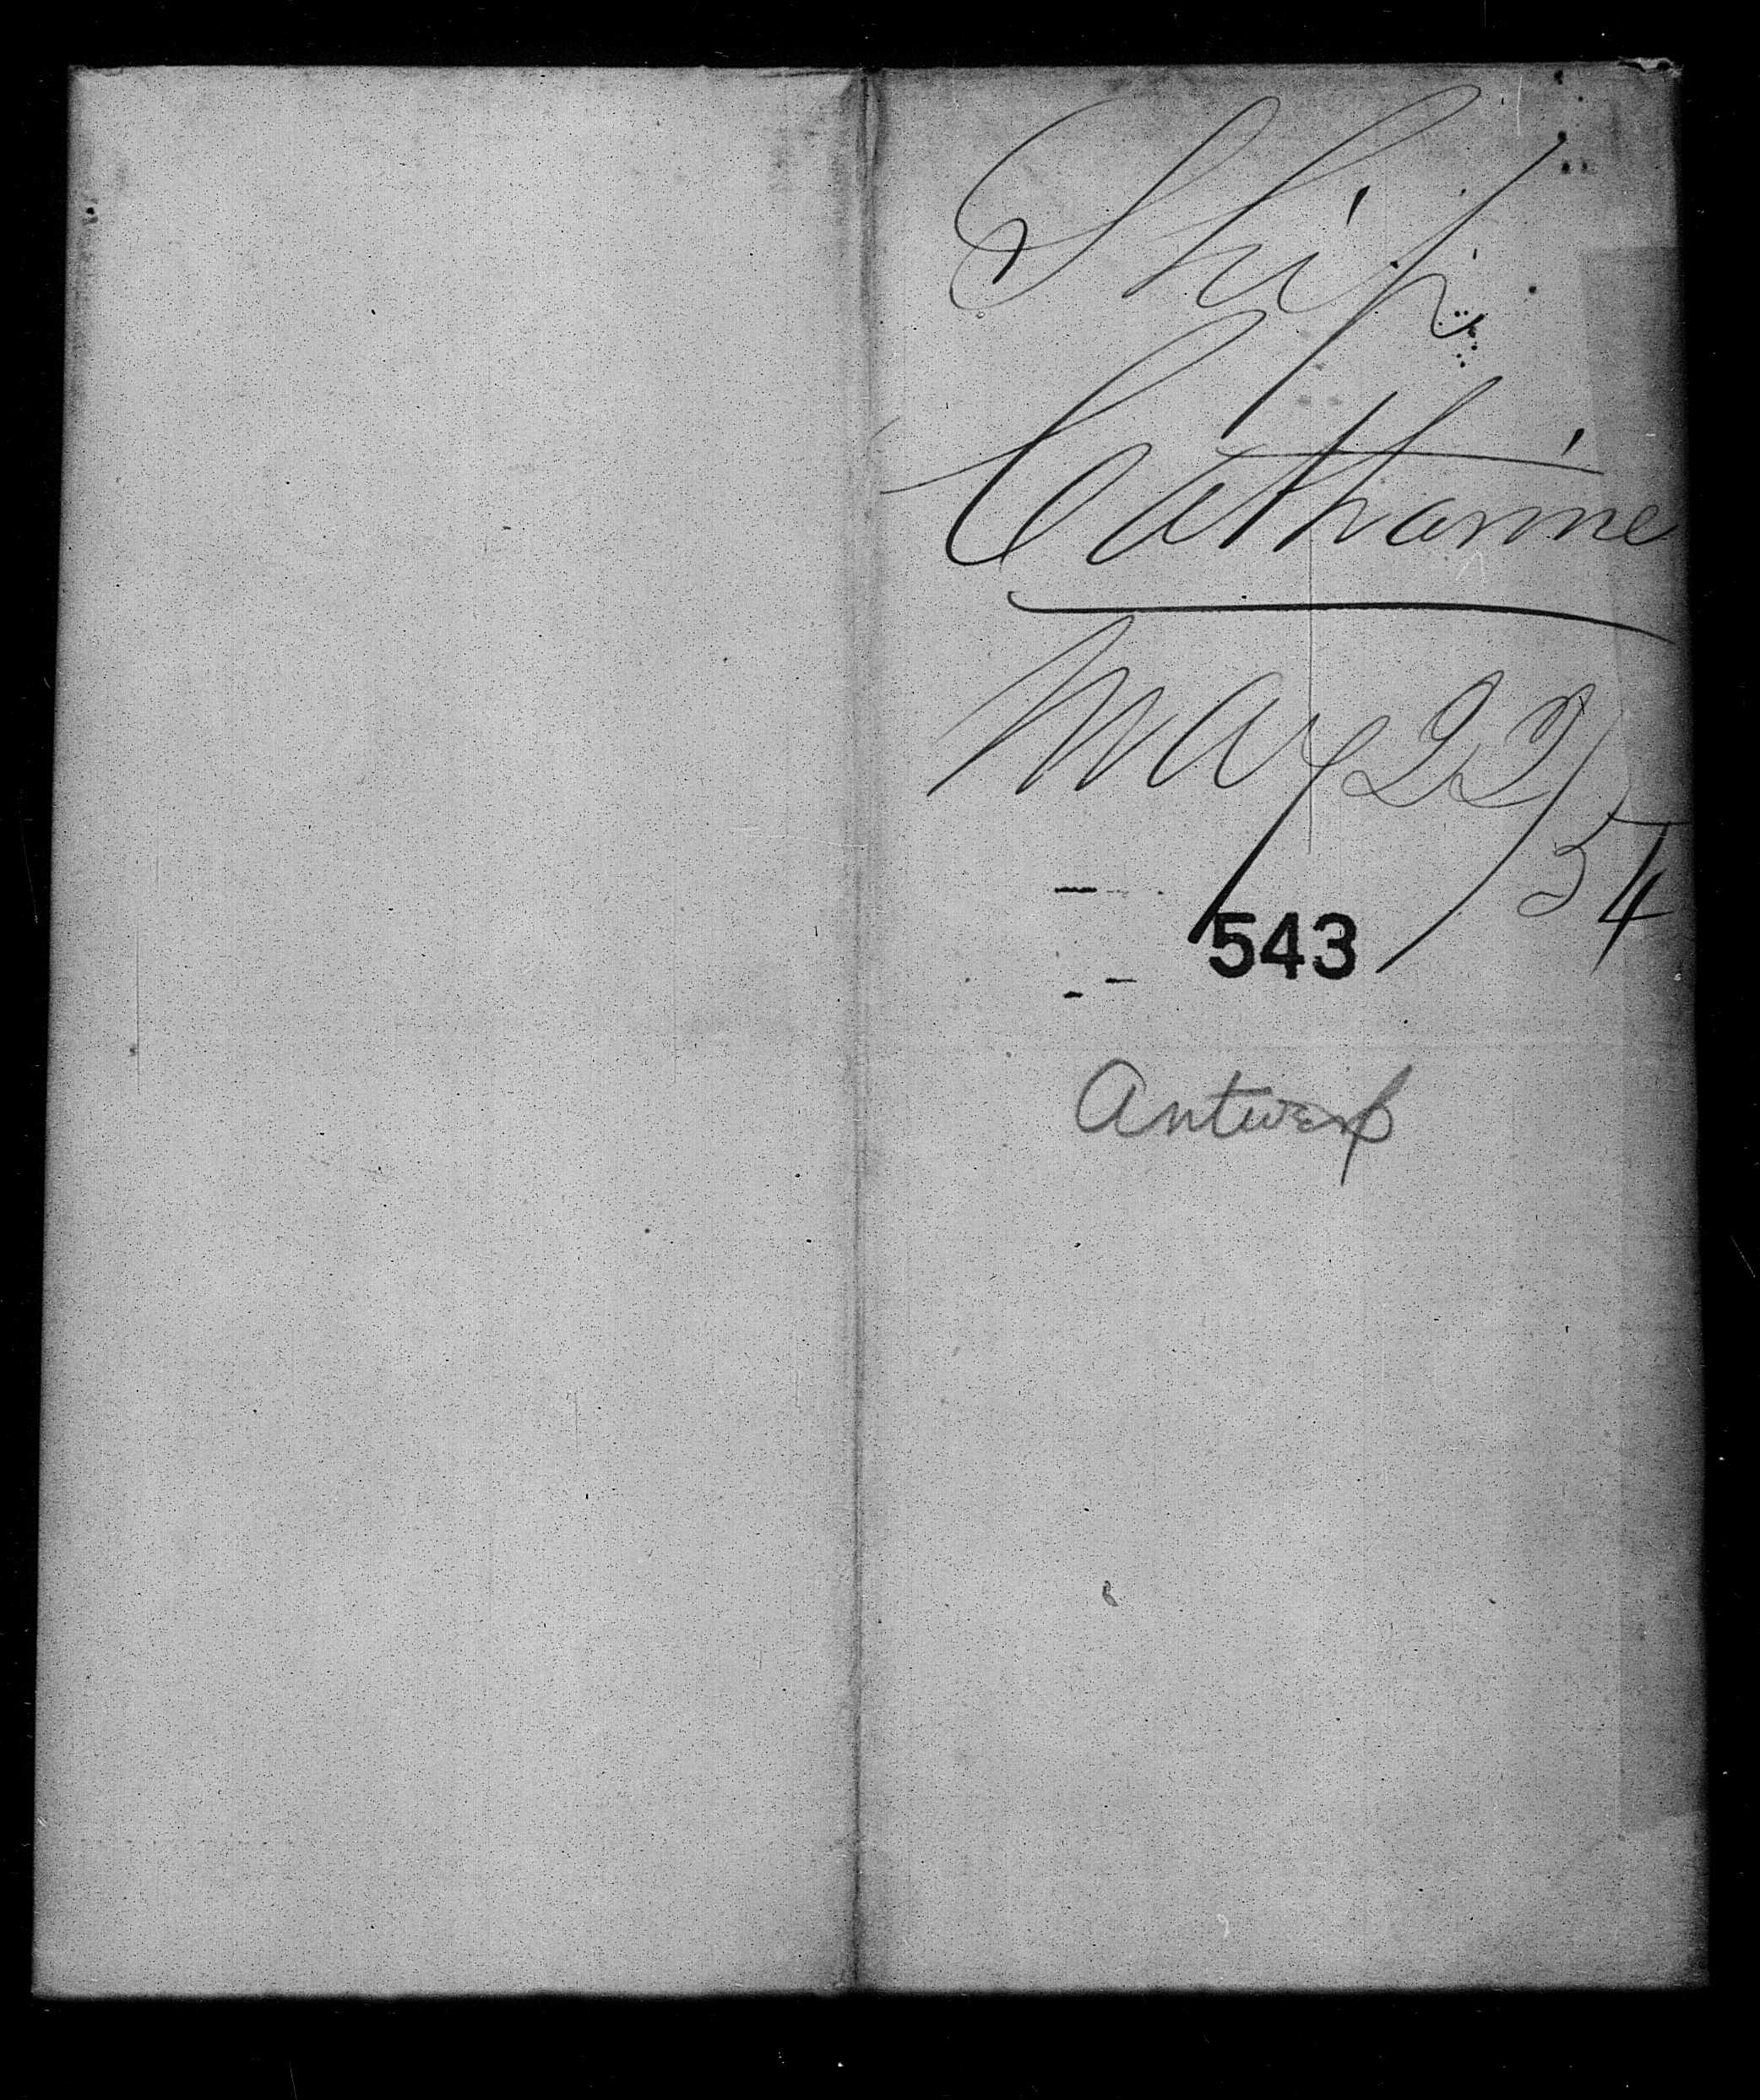 Ship
Catharine
May 22/54
543
Antwerp